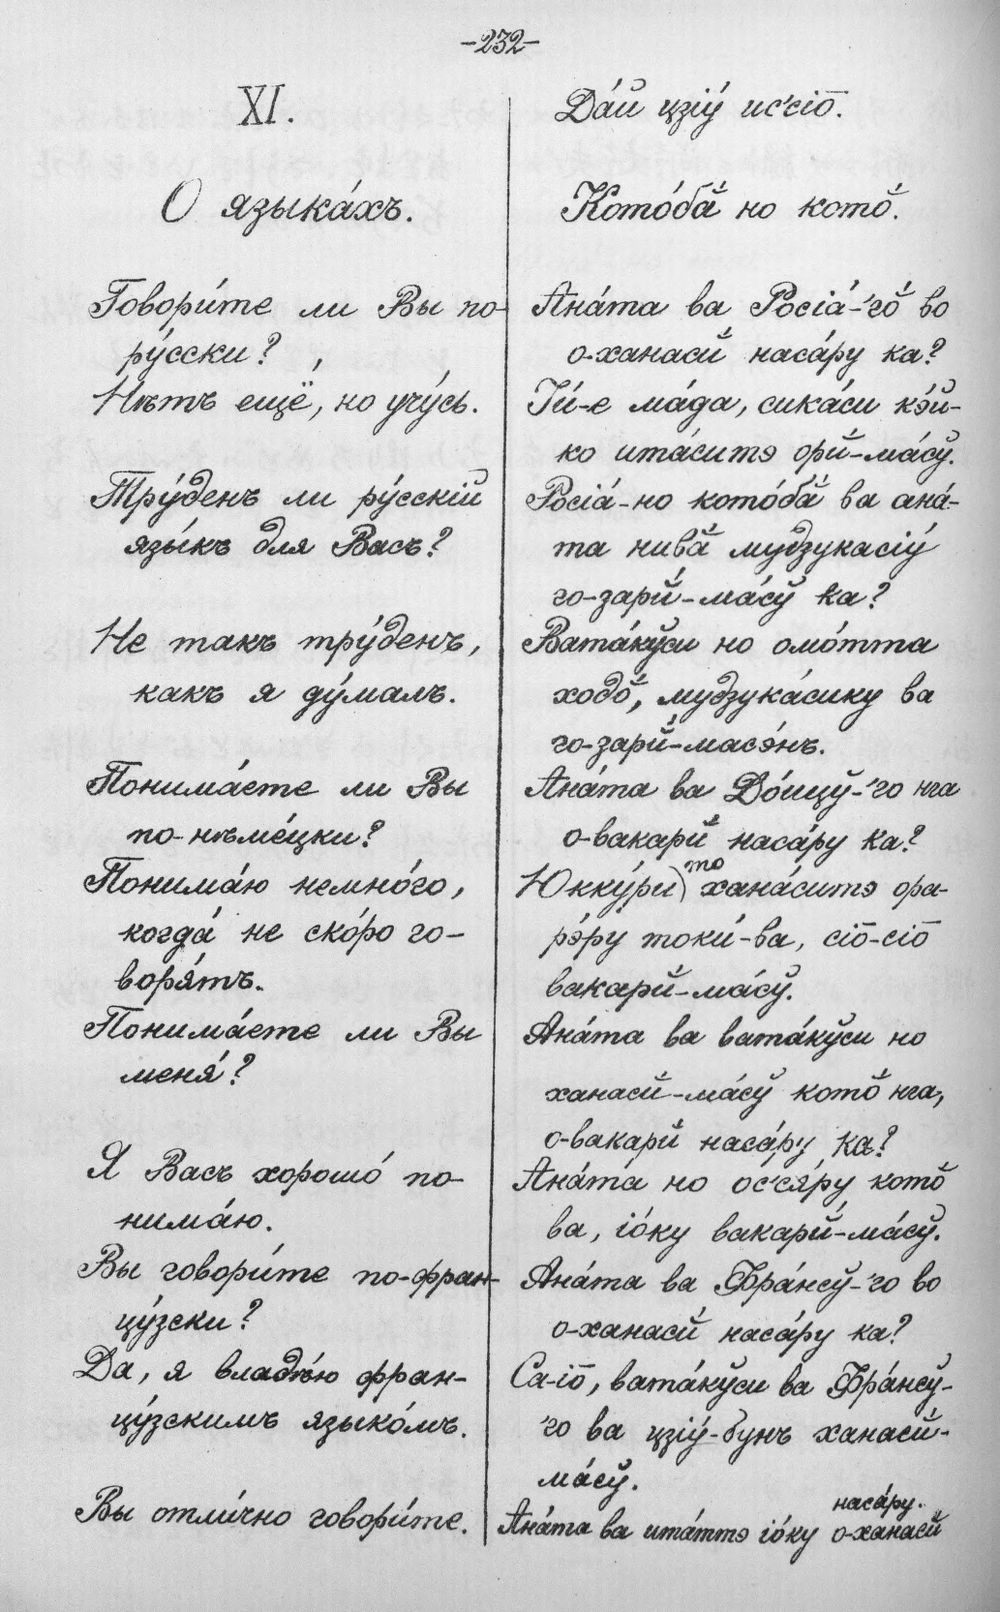 -232-
XI.
О язы́кахъ.
Говори́те ли Вы по-
ру́сски?
Нѣтъ ещё, но учу́сь.
Тру́денъ ли ру́сскій
язы́къ для Васъ?
Не такъ тру́денъ,
какъ я ду́малъ.
Понима́ете ли Вы
по-нѣме́цки?
Понима́ю немно́го,
когда́ не ско́ро го-
воря́тъ.
Понима́ете ли Вы
меня́?
Я Васъ хорошо́ по-
нима́ю.
Вы говори́те по-фран-
цу́зски?
Да, я владѣ́ю фран-
цу́зскимъ языко́мъ.
Вы отли́чно говори́те.
Да́й цзіу́ ис'сіо̄.
Кото́бӑ но кото̆́.
Ана́та ва Росіа́-'го̆́ во
о-ханасй́ наса́ру ка?
Іи́-е ма́да, сика́си кэ́й-
ко ита́ситэ орй́-ма́сў.
Росіа́-но кото́бӑ ва ана́-
та нивӑ́ мудзукасіу́
го-зарй́-ма́сў ка?
Вата́кўси но омо́тта
ходо̆́, мудзука́сику ва
го-зарй́-масэ́нъ.
Ана́та ва До́ицў-'го нга
о-вакарй́ наса́ру ка?
Юкку́ри то хана́ситэ ора-
рэ́ру токи́-ва, сіо̄-сіо̄
вакарй́-ма́сў.
Ана́та ва вата́кўси но
ханасй́-ма́сў кото̆́ нга,
о-вакарй́ наса́ру ка?
Ана́та но ос'ся́ру кото̆
ва, іо́ку вакарй́-ма́сў.
Ана́та ва Фра́нсў-'го во
о-ханасй́ наса́ру ка?
Са-іо̄, вата́кўси ва Фра́нсў-
'го ва цзіу́-бунъ ханасй́-
ма́сў.
Ана́та ва ита́ттэ іо́ку о-ханасй́
наса́ру.